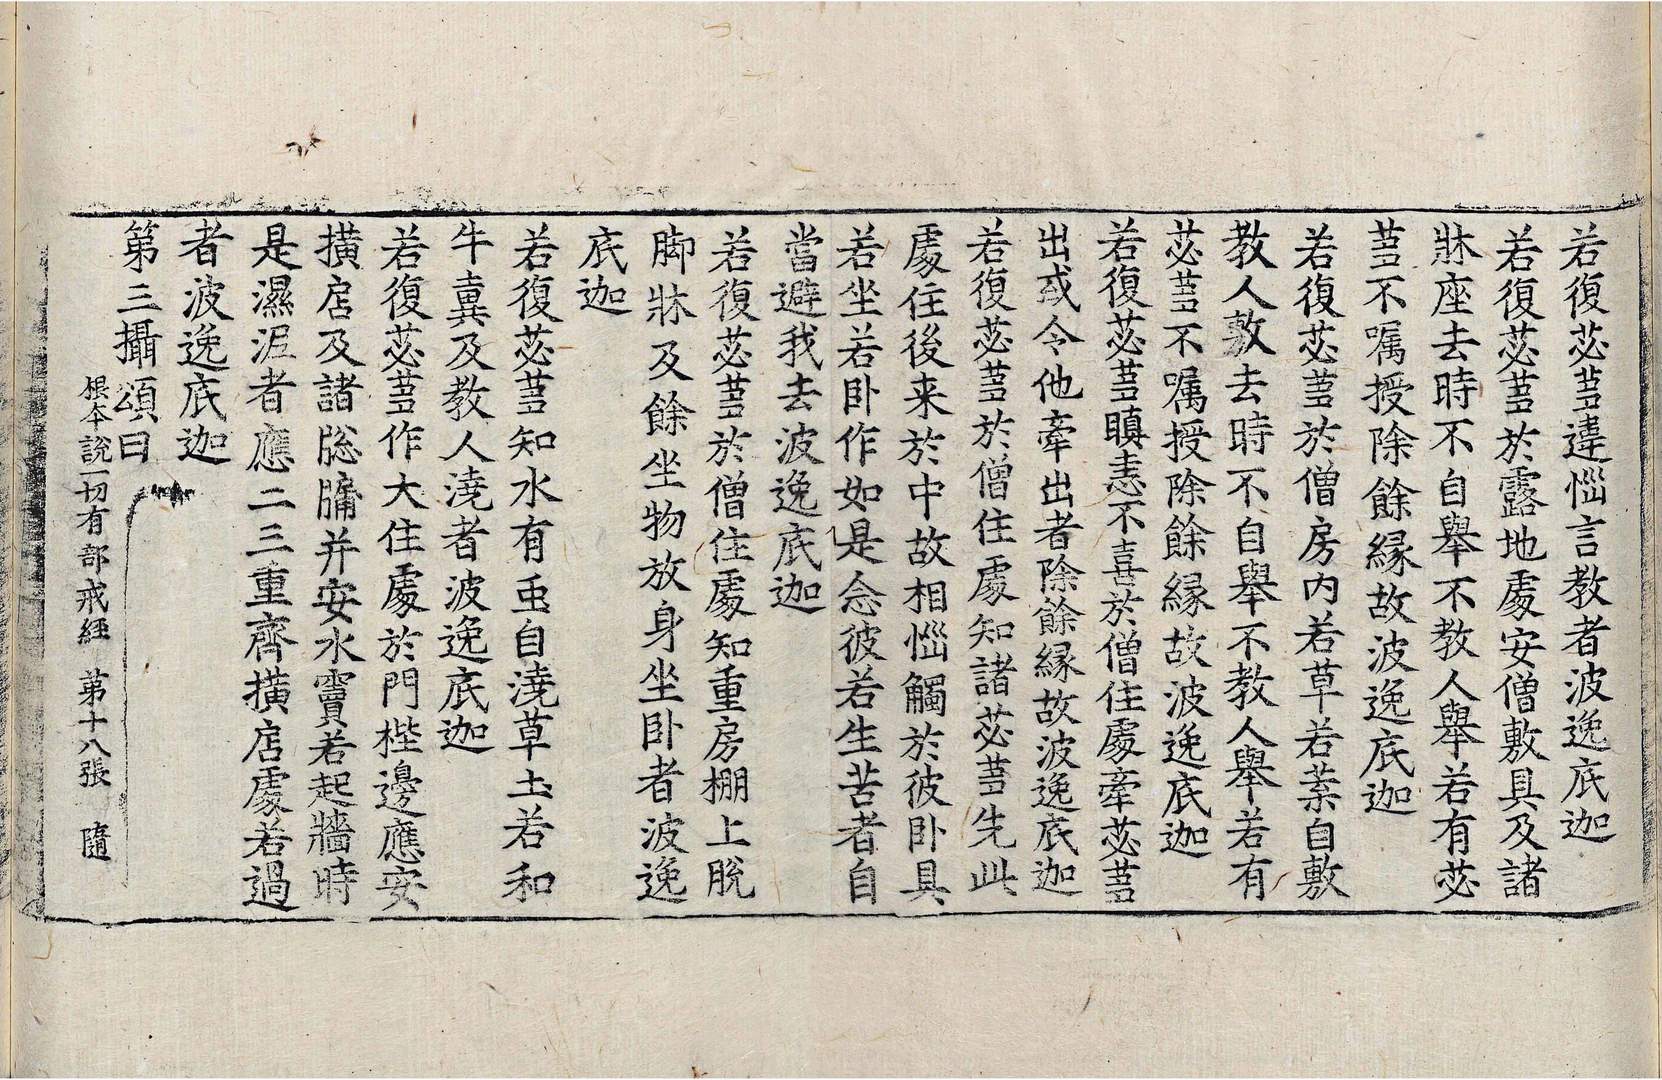 若復苾䔲違惱言教者波逸底迦
若復苾䔲於露地處安僧敷具及諸
牀座去時不自舉不教人舉若有苾
䔲不囑授除餘縁故波逸底迦
若復苾䔲於僧房内若草若葉自敷
教人敷去時不自舉不教人舉若有
苾䔲不囑授除餘縁故波逸底迦
若復苾䔲瞋恚不喜於僧住處牽苾䔲
出或令他牽出者除餘縁故波逸底迦
若復苾䔲於僧住處知諸苾䔲先此
處住後来於中故相惱觸於彼卧具
若坐若卧作如是念彼若生苦者自
當避我去波逸底迦
若復苾䔲於僧住處知重房棚上脫
脚牀及餘坐物放身坐卧者波逸
底迦
若復苾䔲知水有䖝自澆草土若和
牛糞及教人澆者波逸底迦
若復苾䔲作大住處於門梐邊應安
撗扂及諸䆫牖并安水竇若起牆時
是濕泥者應二三重齊撗扂處若過
者波逸底迦
第三攝頌曰
根本說一切有部戒經 第十八張 隨